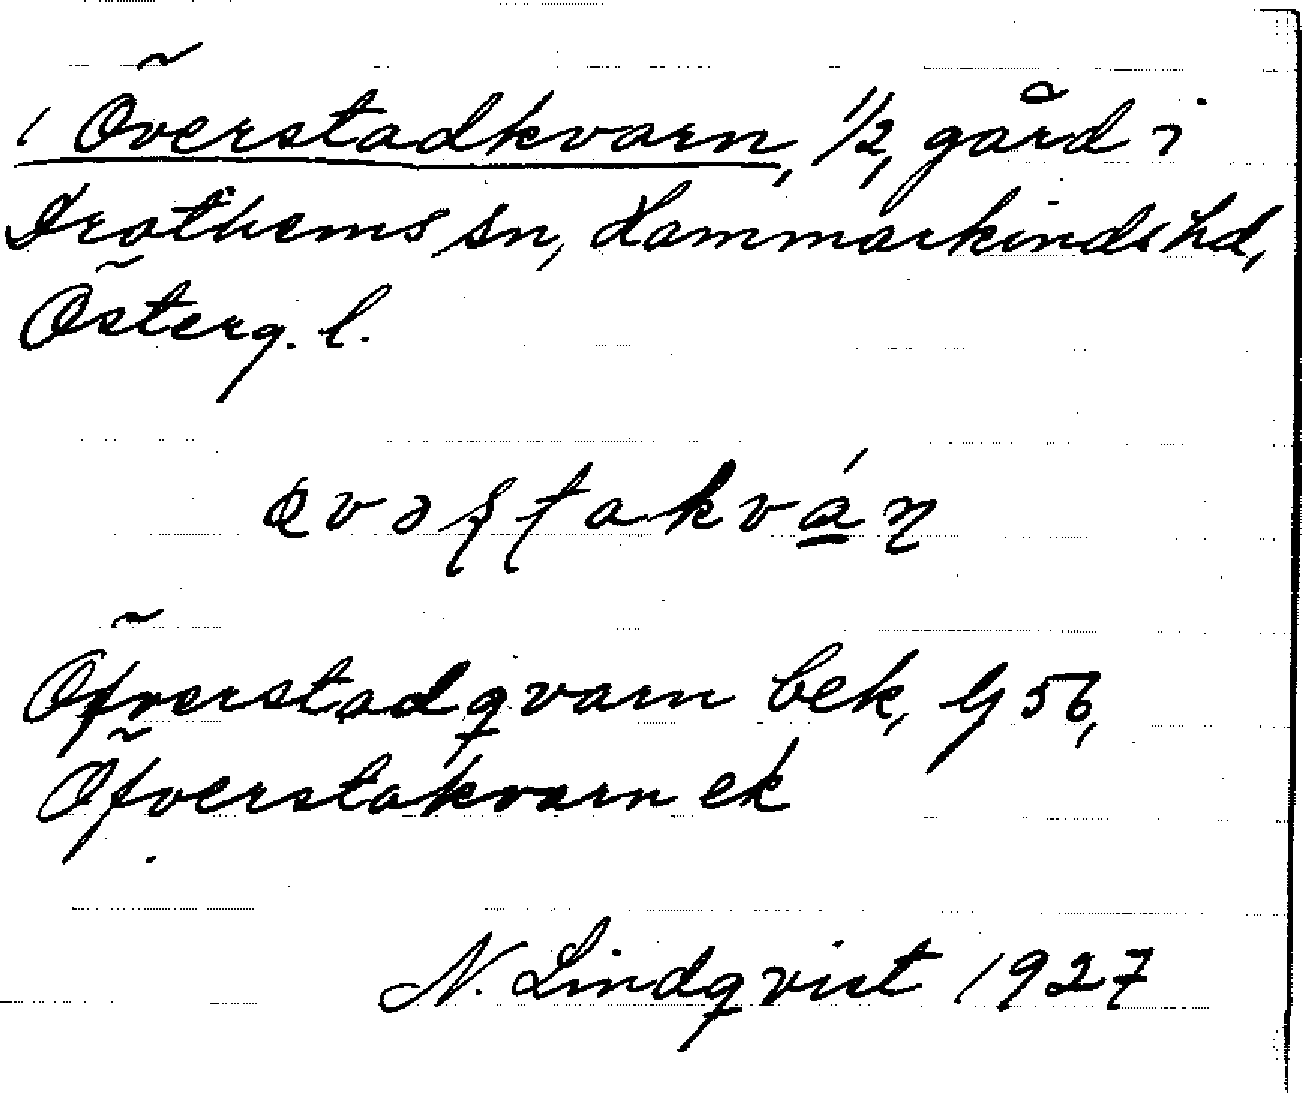 / Överstadkvarn, 1/2, gård i
Drothems sn, Hammarkinds hd,
Österg. l.
Öfverstadqvarn bek, Gj 56,
Öfverstakvarn ek
N. Lindqvist 1927